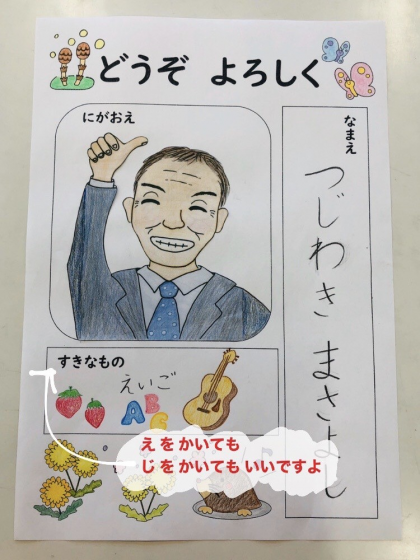 どうぞ よろしく
にがおえ
なまえ
つじわき まさよし
すきなもの
えいご
ABC
え を かいても
じ を かいても いいですよ